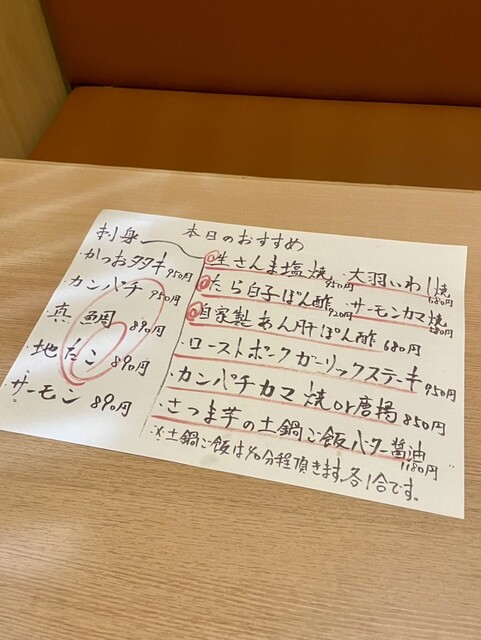 本日のおすすめ
刺身
・かつおタタキ 950円
・カンパチ 950円
真鯛 890円
・地たこ 890円
・サーモン 890円
生さんま塩焼 950円 ・大羽いわし焼 680円
たら白子ぽん酢 920円 ・サーモンカマ焼 580円
自家製あん肝ぽん酢 680円
・ローストポークガーリックステーキ 950円
・カンパチカマ焼or唐揚 850円
・さつま芋の土鍋ご飯バター醤油 1180円
※土鍋ご飯は40分程頂きます。各1合です。